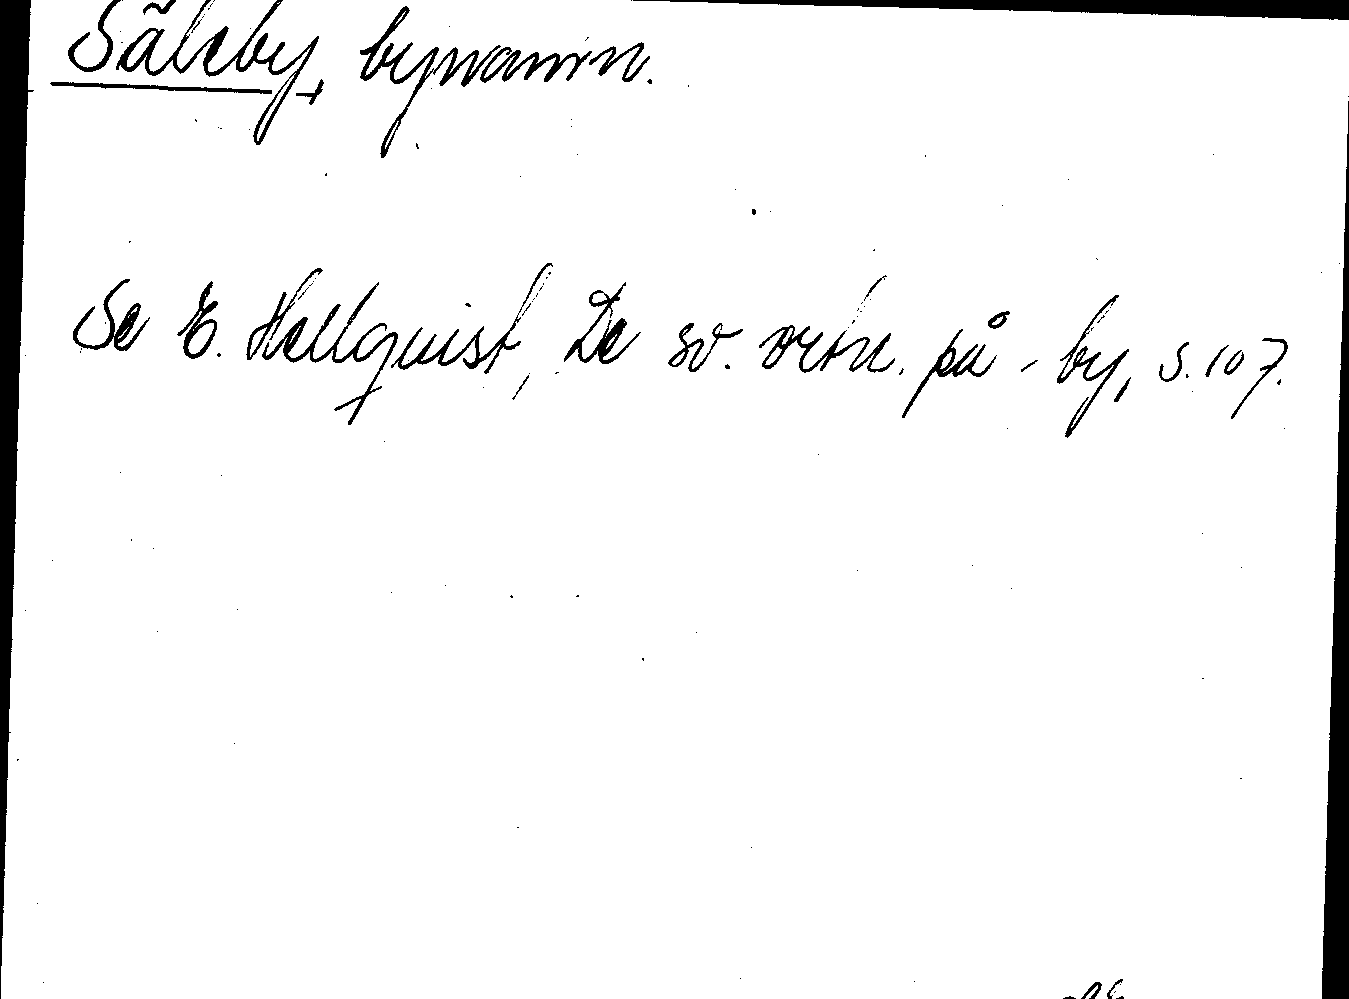 Säleby, bynamn.
Se E. Hellquist, De sv. ortn. på -by, s. 107.